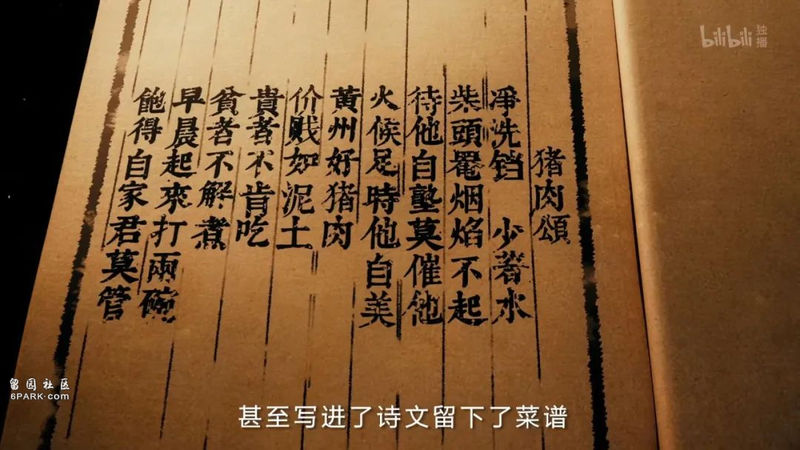 bilibili 独播
猪肉頌
凈洗铛 少著水
柴頭罨烟焰不起
待他自塾莫催他
火候足時他自美
黄州好猪肉
价贱如泥土
貴者不肯吃
貧者不解煮
早晨起來打兩碗
飽得自家君莫管
留园社区
6PARK.com
甚至写进了诗文留下了菜谱